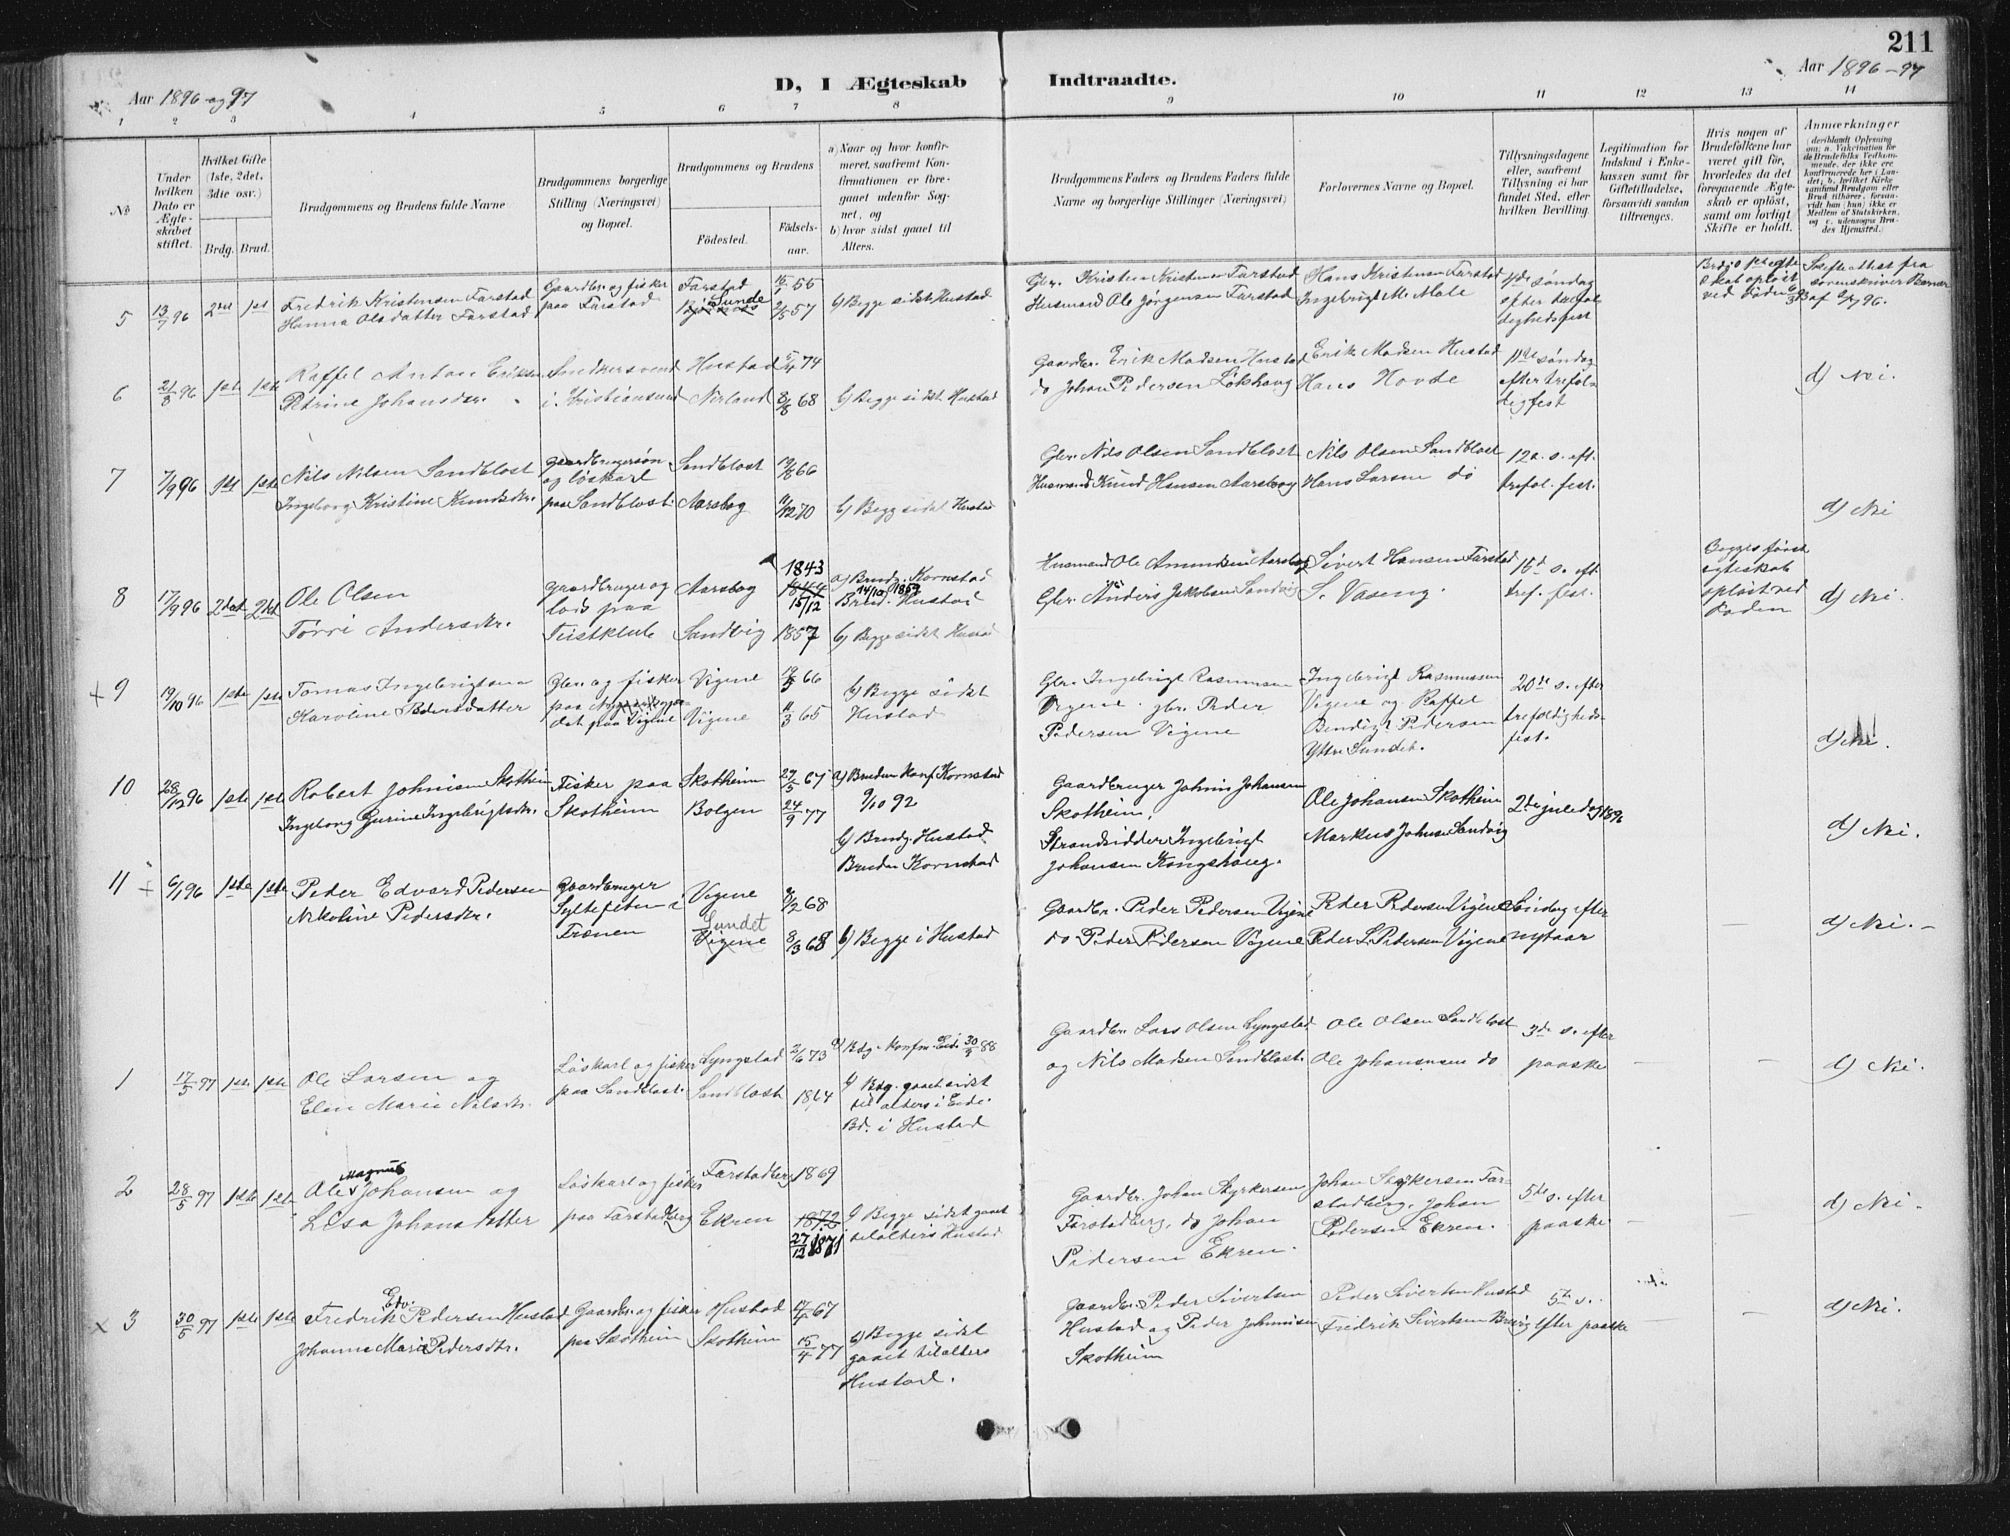 211
Aar 1896 og 97
D, I Ægteskab Indtraadte.
Aar 1896-97
1 2 3 4 5 6 7 8 9 10 11 12 13 14
№
Under hvilken Dato er Ægteskabet stiftet.
Hvilket Gifte (1ste, 2det, 3die osv.)
Brdg. Brud.
Brudgommens og Brudens fulde Navne
Brudgommens borgerlige Stilling (Næringsvei) og Bopæl.
Brudgommens og Brudens
Födested.
Födselsaar.
a) Naar og hvor konfirmeret, saafremt Konfirmationen er foregaaet udenfor Sognet, og
b) hvor sidst gaaet til Alters.
Brudgommens Faders og Brudens Faders fulde Navne og borgerlige Stillinger (Næringsvei)
Forlovernes Navne og Bopæl.
Tillysningsdagene eller, saafremt Tillysning ei har fundet Sted, efter hvilken Bevilling.
Legitimation for Indskud i Enkekassen samt for Giftetilladelse, forsaavidt saadan tiltrænges.
Hvis nogen af Brudefolkene har været gift för, hvorledes da det foregaaende Ægteskab er oplöst, samt om lovligt Skifte er holdt.
Anmærkninger
5 13/7 96 2det 1st
Fredrik Kristensen Farstad
Hanna Olsdatter Farstad
Gaardbr. og fisker
paa Farstad
Farstad
Sunde
Björnsos
55
2/5 57
b) Begge sidst Hustad
Gbr. Kristen Kristensen Farstad
Husmand Ole Jörgensen Farstad
Hans Kristensen Farstad
Ingebrigt M. Male
söndag
efter trefol
digheds fest
Skifteattest fra
sorenskriver
af 9/7 96.
6 21/8 96 1ste 1ste
Raffel Anton Eriksen
Petrine Johansdtr.
Snekkersvend
i Kristiansund
Hustad
Nerland
74
8/8 68
b) Begge sidst Hustad
Gaardbr. Erik Madsen Hustad
do Johan Pedersen Lökhaug
Erik Madsen Hustad
Hans Hovde
11te söndag
efter trefol
digfest
d) Nei.
7 7/9 96 1ste 1ste
Nils Nilsen Sandblost
Ingeborg Kristine Knudsdtr.
gaardbrugersön
og löskarl
paa Sandblost.
Sandblost
Aarsbog
19/8 66
11/12 70
b) Begge sidst Hustad
Gbr. Nils Olsen Sandblost
Husmand Knud Hansen Aarsbog
Nils Olsen Sandblost
Hans Larsen do
12te s. eft.
trefol. fest.
d) Nei
8 17/9 96 2det 2det
Ole Olsen
Törri Andersdtr.
gaardbruger og
lods paa
Teistklub
Aarsbog
Sandvig
1843
1844
15/12
1857
a) Brudg. Kornstad
14/10 1859
Brud. Hustad
b) Begge sidst Hustad
Husmand Ole Amundsen Aarsbog
Gbr. Anders Jakobsen Sandvig
Sivert Hansen Farstad
S. Vaseng.
15de s. eft
tref. fest.
Begges förste
egteskab
oplöst ved
döden
d) Nei.
+ 9 19/10 96 1ste 1ste
Tomas Ingebrigtsen
Karoline Pedersdatter
Gbr. og fisker
dat paa Vigene
Vigene
Vigene
19/5 66
11/3 65
b) Begge sidst
Hustad
Gbr. Ingebrigt Rasmussen
Vigene. gbr. Peder
Pedersen Vigene
Ingebrigt Rasmussen
Vigene og Raffel
Bendigt Pedersen
Yttre Sundet.
20de s. efter
trefoldigheds-
fest.
d) Nei.
10 28/12 96 1ste 1ste
Robert Johnisen Skotheim
Ingeborg Gurine Ingebrigtsdtr.
Fisker paa
Skotheim
Skotheim
Bolgen
27/5 67
24/9 77
a) Bruden konf. Kornstad
9/10 92
b) Brudg. Hustad
Bruden Kornstad
Gaardbruger Johnis Johansen
Skotheim,
Strandsidder Ingebrigt
Johansen Kongshaug.
Ole Johansen Skotheim
Markus Johnsen Sandvig
2den juledag 1896
d) Nei.
11 + 6/1 96 1ste 1ste
Peder Edvard Pedersen
Nikoline Pedersdtr.
Gaardbruger
Syltefeten i
Frænen
Vigene
Sundet
Vigene
68
8/3 68
b) Begge i Hustad
Gaardbr. Peder Pedersen Vigene
do Peder Pedersen Vigene
Peder Pedersen Vigene
Peder L. Pedersen Vigene
Söndag efter
nytaar
d) Nei.
1 17/5 97 1ste 1ste
Ole Larsen og
Elen Marie Nilsdtr.
Löskarl og fisker
paa Sandblost.
Lyngstad
Sandblost
2/6 73
1864
a) Bdg. konfm. Eide 30/9 88
b) Bdg. gaaet sidst
til alters i Eide.
Bd. i Hustad
Gaardbr. Lars Olsen Lyngstad
og Nils Madsen Sandblost.
Ole Olsen Sandblost
Ole Johansen do
3die s. efter
paaske
d) Nei.
2 28/5 97 1ste 1ste
Magnus
Ole Johansen og
Lisa Johansdatter
Löskarl og fisker
paa Farstadberg
Farstadberg
Ekren
1869
1872
27/12 1871
b) Begge sidst gaaet
tilalters Hustad
Gaardbr. Johan Styrkersen
Farstadberg, do Johan
Pedersen Ekren.
Johan Styrkersen Far-
stadberg, Johan
Pedersen Ekren.
5te s. efter
paaske
d) Nei.
x 3 30/5 97 1ste 1ste
Edv.
Fredrik Pedersen Hustad
Johanna Marie Pedersdtr.
Gaardbr. og fisker
paa Skotheim
Hustad
Skotheim
67
15/4 77
b) Begge sidst
gaaet tilalters
Hustad.
Gaardbr. Peder Sivertsen
Hustad og Peder Johnnisen
Skotheim
Peder Sivertsen Hustad
Fredrik Sivertsen
5te s.
efter paaske
d) Nei.